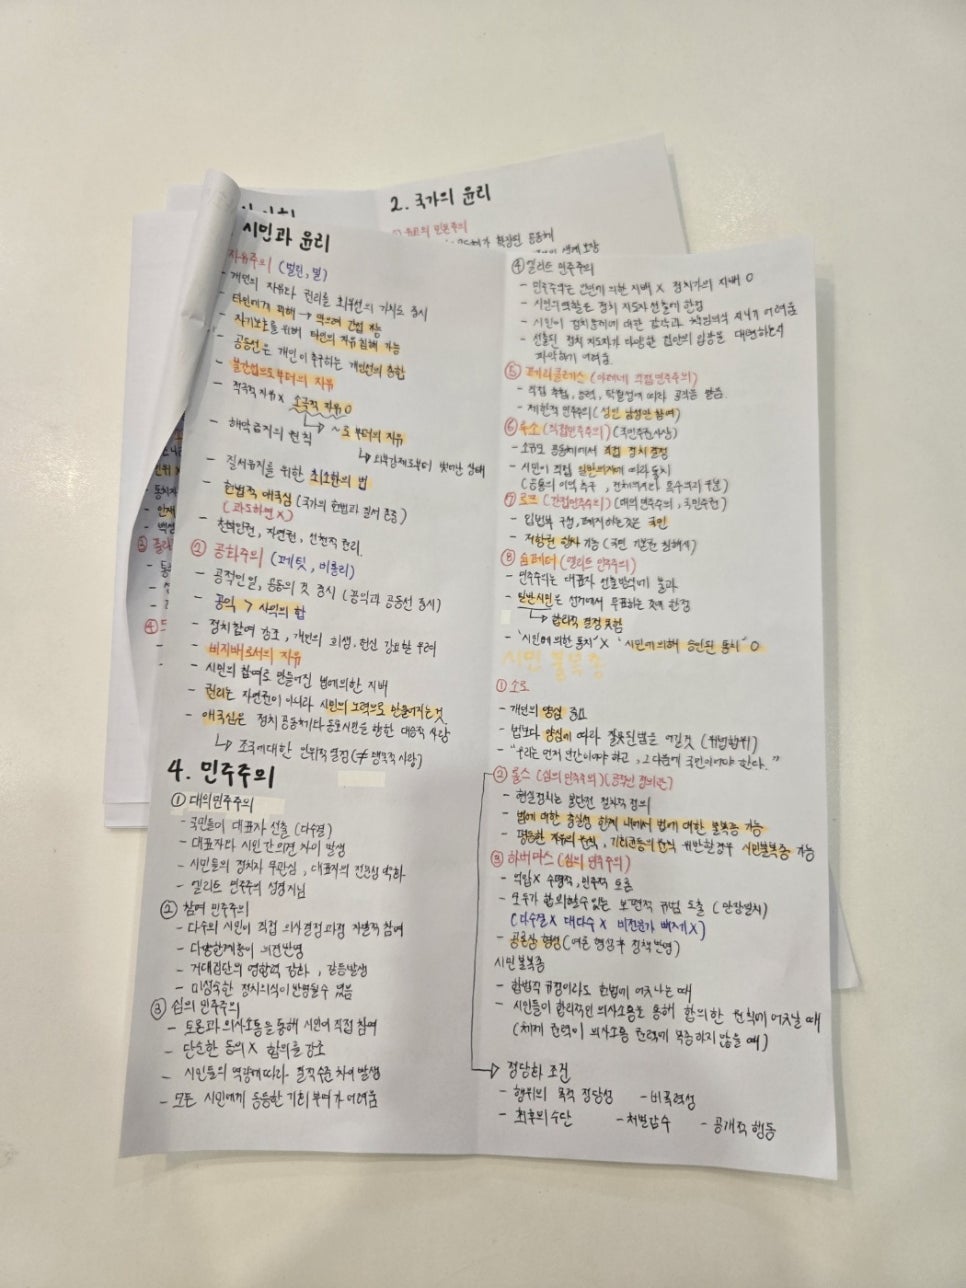 2. 국가의 윤리
시민과 윤리
자유주의 (벌린, 밀)
- 개인의 자유와 권리를 최우선의 가치로 중시
- 타인에게 피해 → 막으려 간섭 가능
- 자기보호를 위해 타인의 자유 침해 가능
- 공동선은 개인이 추구하는 개인선의 총합
- 불간섭으로부터의 자유
- 적극적 자유 X 소극적 자유 O
↳ ~로부터의 자유
↳ 외부강제로부터 벗어난 상태
- 해악금지의 원칙
- 질서유지를 위한 최소한의 법
- 헌법적 애국심 (국가의 헌법과 질서 존중)
(과도하면 X)
- 천부인권, 자연권, 선천적 권리.
② 공화주의 (페팃, 비롤리)
- 공적인일, 공동의 것 중시 (공익과 공동선 중시)
- 공익 > 사익의 합
- 정치참여 강조, 개인의 희생·헌신 강요할 우려
- 비지배로서의 자유
- 시민의 참여로 만들어진 법에 의한 지배
- 권리는 자연권이 아니라 시민의 노력으로 만들어지는 것.
- 애국심은 정치 공동체와 동료시민을 향한 대승적 사랑
↳ 조국에 대한 인위적 열정 (≠ 맹목적 사랑)
4. 민주주의
① 대의민주주의
- 국민들이 대표자 선출 (다수결)
- 대표자와 시민 간 의견 차이 발생
- 시민들의 정치적 무관심, 대표자의 전문성 약화
- 엘리트 민주주의 성격 지님
② 참여 민주주의
- 다수의 시민이 직접 의사결정과정 자발적 참여
- 다양한계층이 의견반영
- 거대집단의 영향력 강화, 갈등발생
- 미성숙한 정치의식이 반영될수 있음
③ 심의 민주주의
- 토론과 의사소통을 통해 시민이 직접 참여
- 단순한 동의 X 합의를 강조
- 시민들의 역량에 따라 질적수준 차이 발생
- 모든 시민에게 동등한 기회 부여가 어려움
④ 엘리트 민주주의
- 민주주의는 인민에 의한 지배 X 정치가의 지배 O
- 시민의 역할은 정치 지도자 선출에 한정
- 시민이 정치충리에 대한 감독과 책임의식 지니기 어려움
- 선출된 정치 지도자가 다양한 집단의 입장을 대변하는지
파악하기 어려움.
⑤ 페리클레스 (아테네 직접 민주주의)
- 직접 추첨, 능력, 탁월성에 따라 공직을 맡음.
- 제한적 민주주의 (성인 남성만 참여)
⑥ 루소 (직접민주주의) (국민주권사상)
- 소규모 공동체에서 직접 정치 결정
- 시민이 직접 일반의지에 따라 통치
⑦ 로크 (간접민주주의) (대의 민주주의, 국민주권)
- 입법부 구성, 폐지하는것은 국민
- 저항권 행사 가능 (국민 기본권 침해시)
⑧ 슘페터 (엘리트 민주주의)
- 민주주의는 대표자 선출방식에 불과
- 일반시민은 선거에서 투표하는 것에 한정
↳ 합리적 결정 못함
- "시민에 의한 통치" X "시민에 의해 승인된 통치" O
시민 불복종
① 소로
- 개인의 양심 중요
- 법보다 양심에 따라 잘못된 법을 어길것 (위법행위)
- "우리는 먼저 인간이어야 하고, 그 다음에 국민이어야 한다."
② 롤스 (심의 민주주의) (공정선 정의론)
- 현실정치는 불완전 절차적 정의
- 법에 대한 충실성 한계 내에서 법에 대한 불복종 가능
- 평등한 자유의 원칙, 기회균등의 원칙 위반한 경우 시민불복종 가능
③ 하버마스 (심의 민주주의)
- 억압 X 수평적, 민주적 토론
- 모두가 합의할수 있는 보편적 규범 도출 (만장일치)
(다수결 X 대다수 X 비전문가 배제 X)
- 공론장 형성 (여론 형성 후 정책반영)
시민 불복종
- 합법적 규정이라도 헌법에 어긋나는 때
- 시민들이 합리적인 의사소통을 통해 합의한 원칙에 어긋날 때
(체제 권력이 의사소통 권력에 복종하지 않을 때)
→ 정당화 조건
- 행위의 목적 정당성 - 비폭력성
- 최후의 수단 - 처벌감수 - 공개적 행동